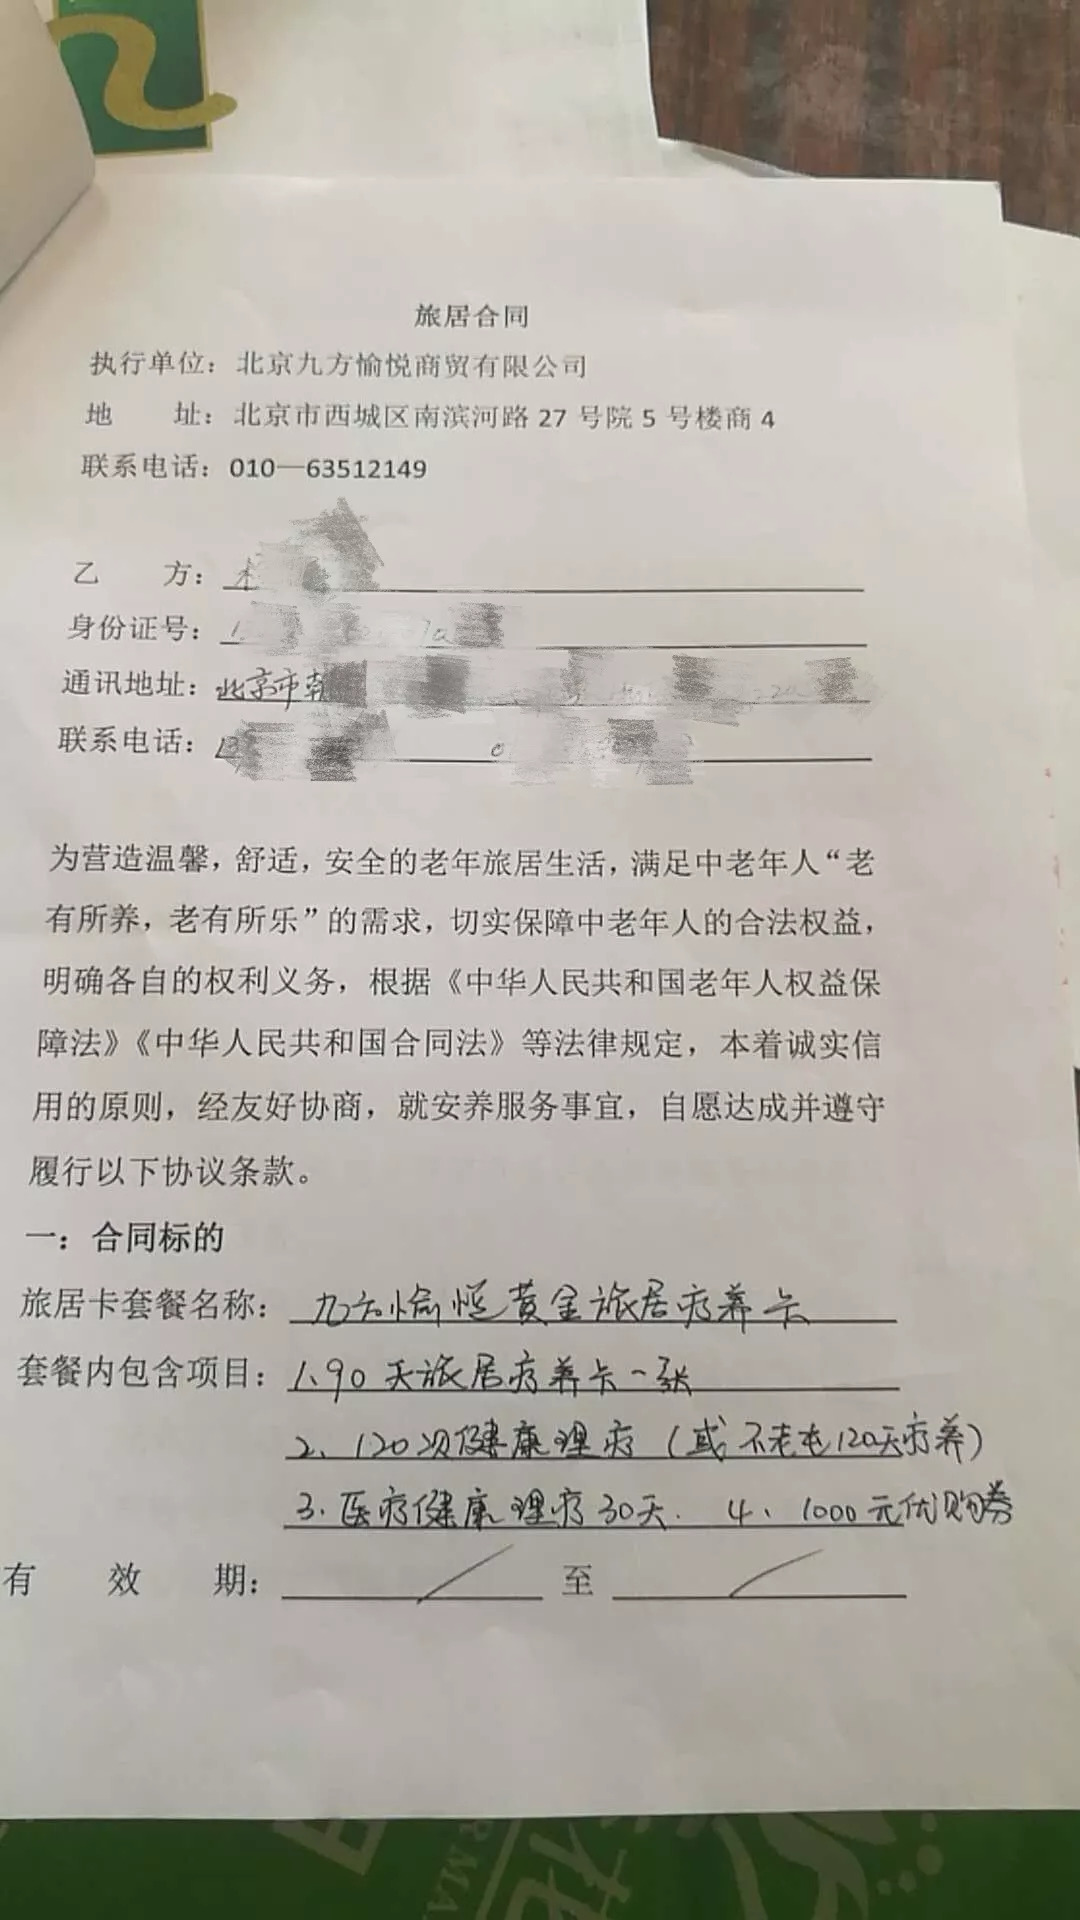 旅居合同
执行单位：北京九方愉悦商贸有限公司
地 址：北京市西城区南滨河路27号院5号楼商4
联系电话：010—63512149
乙 方：
身份证号：
通讯地址：北京市朝
联系电话：13
为营造温馨，舒适，安全的老年旅居生活，满足中老年人“老
有所养，老有所乐”的需求，切实保障中老年人的合法权益，
明确各自的权利义务，根据《中华人民共和国老年人权益保
障法》《中华人民共和国合同法》等法律规定，本着诚实信
用的原则，经友好协商，就安养服务事宜，自愿达成并遵守
履行以下协议条款。
一：合同标的
旅居卡套餐名称：九方愉悦黄金旅居疗养卡
套餐内包含项目：1、90天旅居疗养卡一张
2、120次健康理疗（或不老屯120天疗养）
3、医疗健康理疗30天. 4、1000元优购券
有 效 期： / 至 /